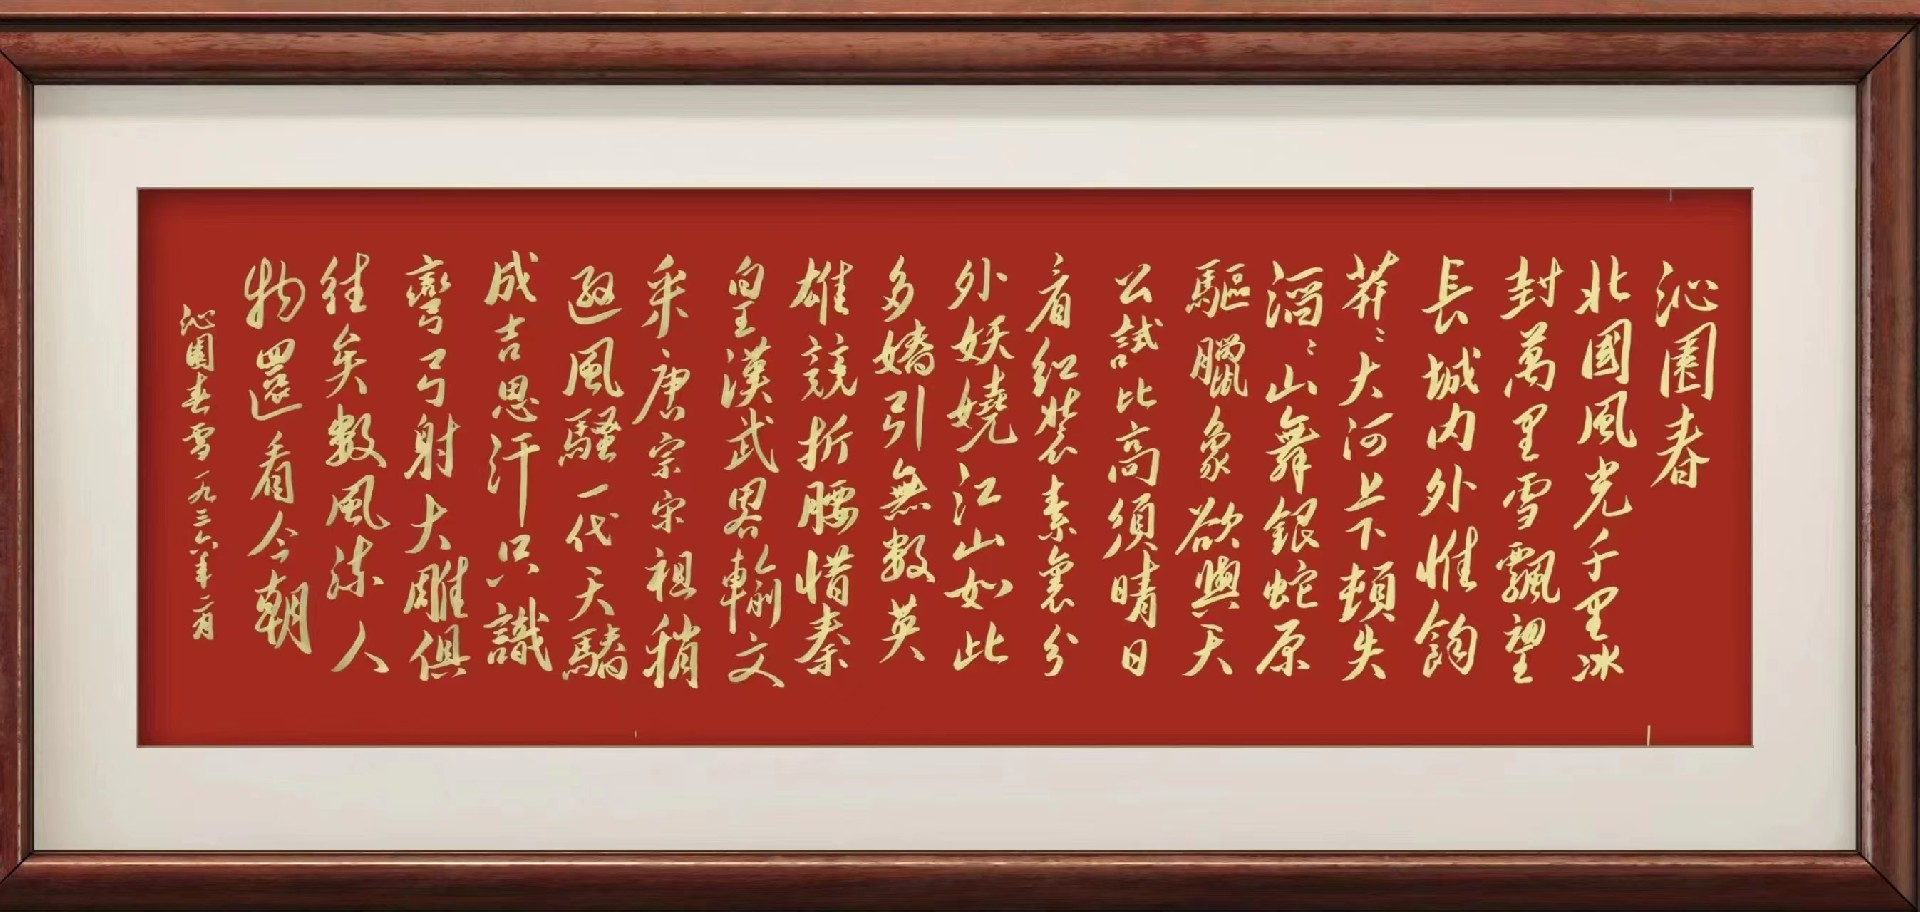 沁園春
北國風光千里冰
封萬里雪飄望
長城内外惟餘
莽〻大河上下頓失
滔〻山舞銀蛇原
驅臘象欲與天
公試比高須晴日
看紅裝素裹分
外妖嬈江山如此
多嬌引無數英
雄競折腰惜秦
皇漢武畧輸文
采唐宗宋祖稍
遜風騷一代天驕
成吉思汗只識
彎弓射大雕俱
往矣數風流人
物還看今朝
沁園春雪一九三六年二月